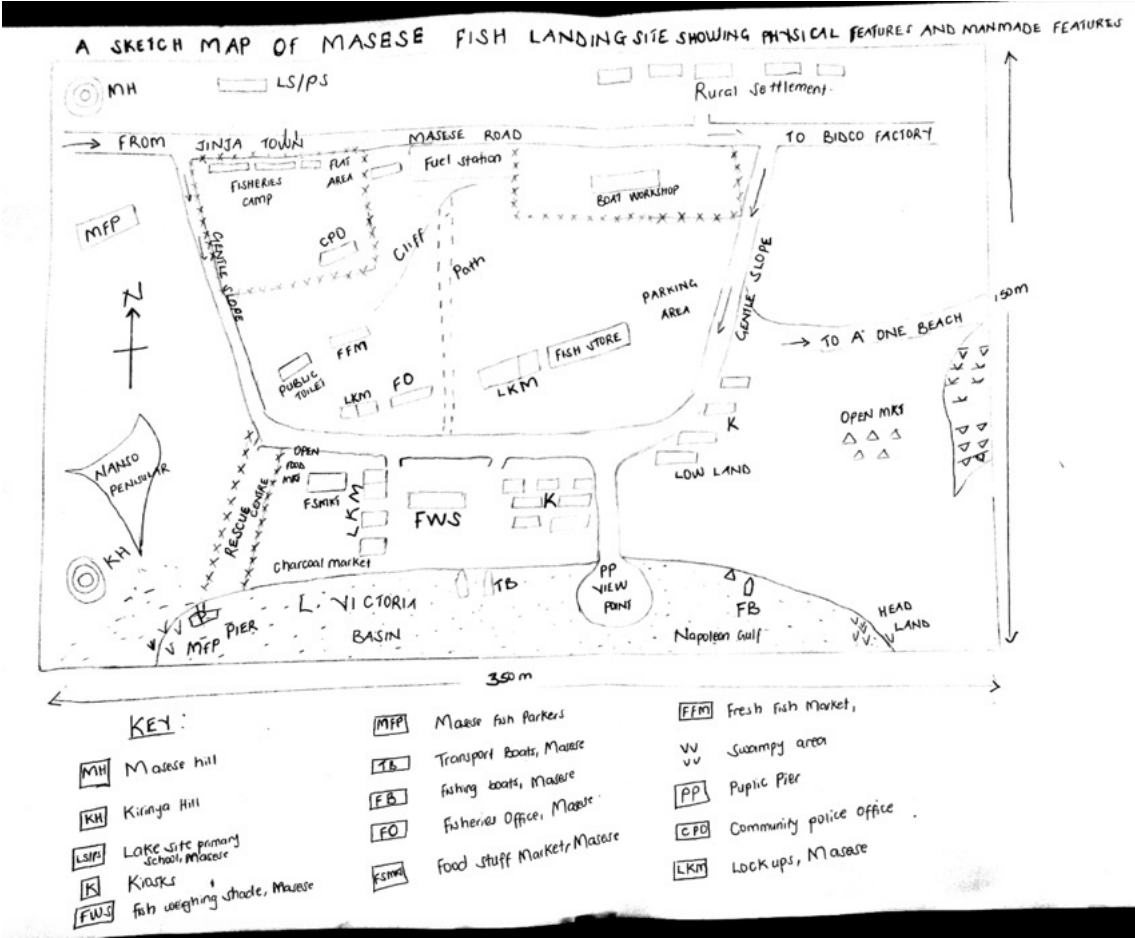 A SKETCH MAP OF MASESE FISH LANDING SITE SHOWING PHYSICAL FEATURES AND MANMADE FEATURES
MH
LS/PS
Rural Settlement.
FROM JINJA TOWN
MASESE ROAD
TO BIDCO FACTORY
FISHERIES
CAMP
FLAT
AREA
Fuel Station
BOAT WORKSHOP
MFP
GENTLE SLOPE
CPO
Cliff
Path
PARKING
AREA
GENTLE SLOPE
150m
N
TO A' ONE BEACH
PUBLIC
TOILET
FFM
LKM
FO
LKM
FISH STORE
K
OPEN MKT
NANSO
PENISULAR
LOW LAND
RESCUE CENTRE
OPEN
FOOD
MKT
FSMKT
LKM
FWS
K
KH
Charcoal market
TB
PP
VIEW
POINT
FB
P
PIER
MFP
L. VICTORIA
BASIN
Napolean Gulf
HEAD
LAND
350m
KEY:
MH Masese hill
KH Kirinya Hill
LS/PS Lake site primary
school, Masese
K Kiosks
FWS fish weighing shade, Masese
MFP Masese fish Parkers
TB Transport Boats, Masese
FB fishing boats, Masese
FO Fisheries Office, Masese
FSMKT Food Stuff Market, Masese
FFM Fresh Fish Market,
Swampy area
PP Puplic Pier
CPO Community police office
LKM Lockups, Masese